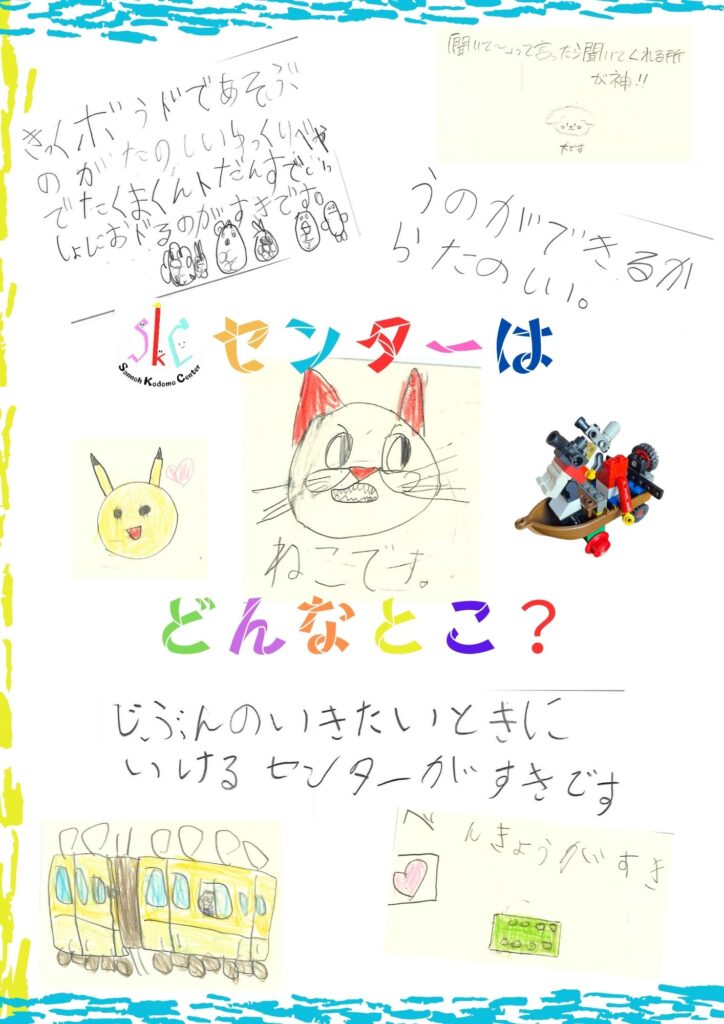 きっくボウドであそぶ
のがたのしいゆっくりべや
でたくまくんトだんすでいっ
しょにおドるのがすきです。
「聞いて〜」って言ったら聞いてくれる所
が神!!
犬です
うのができるか
らたのしい。
SKC センターは
Sannoh Kodomo Center
ねこです。
どんなとこ?
じぶんのいきたいときに
いけるセンターがすきです
べんきょうがすき